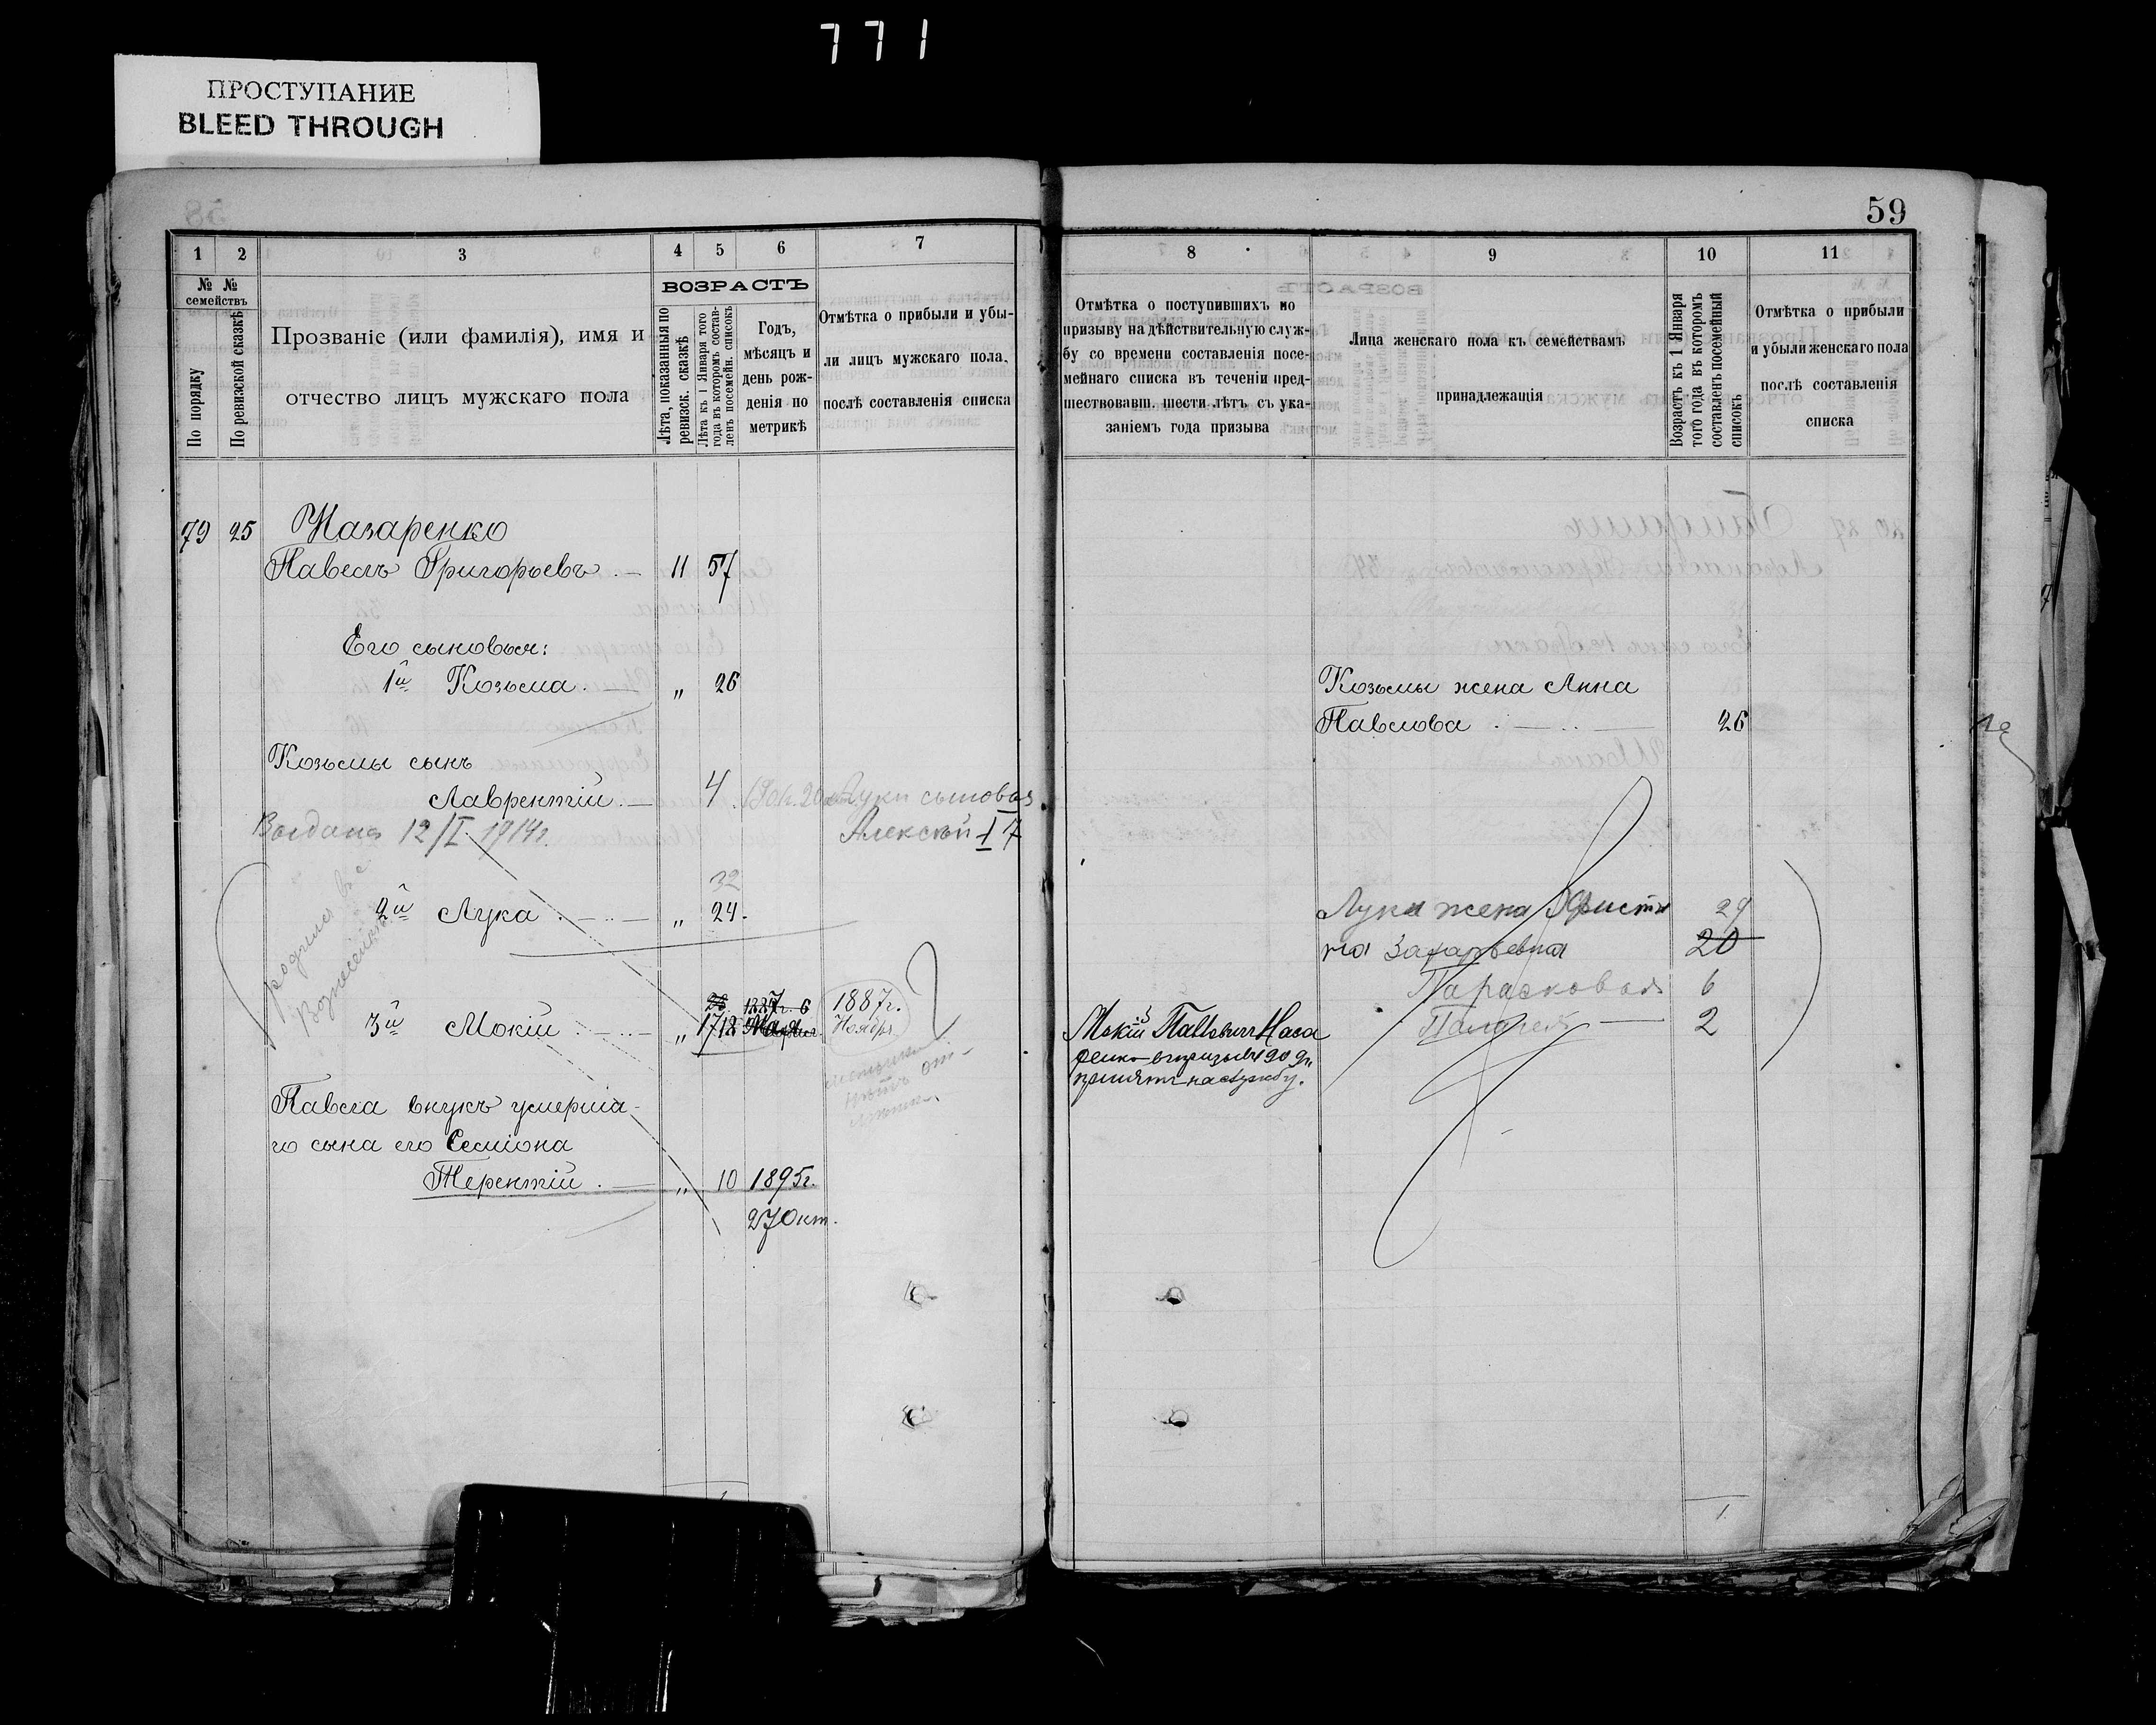 771
ПРОСТУПАНИЕ
BLEED THROUGH
59
1 2 3 4 5 6 7
№ №
семействъ
По порядку
По ревизской сказкѣ
Прозваніе (или фамилія), имя и
отчество лицъ мужскаго пола
ВОЗРАСТЪ
Лѣта, показанныя по
ревизск. сказкѣ
Лѣта къ 1 Января того
года въ которомъ состав-
ленъ посемейн. списокъ
Годъ,
мѣсяцъ и
день рож-
денія по
метрикѣ
Отмѣтка о прибыли и убы-
ли лицъ мужскаго пола,
послѣ составленія списка
79 25 Назаренко
Павелъ Григорьевъ 11 57
Его сыновья:
1й Козьма " 26
Козьмы сынъ
Лаврентій 4 Луки сыновья
Выданъ 12/I 1914г. Алексѣй 7
32
2й Лука " 24
родился въ с.
28 1887г. 6 1887г.
3й Мокій " 17 18 Ноября
Павла внукъ умерша-
го сына его Семіона
Терентій " 10 1895г.
27 Окт.
8 9 10 11
Отмѣтка о поступившихъ по
призыву на дѣйствительную служ-
бу со времени составленія посе-
мейнаго списка въ теченіи пред-
шествовавш. шести лѣтъ съ ука-
заніемъ года призыва
Лица женскаго пола къ семействамъ
принадлежащія
Возрастъ къ 1 Января
того года въ которомъ
составленъ посемейный
списокъ
Отмѣтка о прибыли
и убыли женскаго пола
послѣ составленія
списка
Козьмы жена Анна
Павлова 26
Луки жена 29
Захарьевна 20
Парасковья 6
Мокій Наза
ренко 2
принятъ на службу.
1